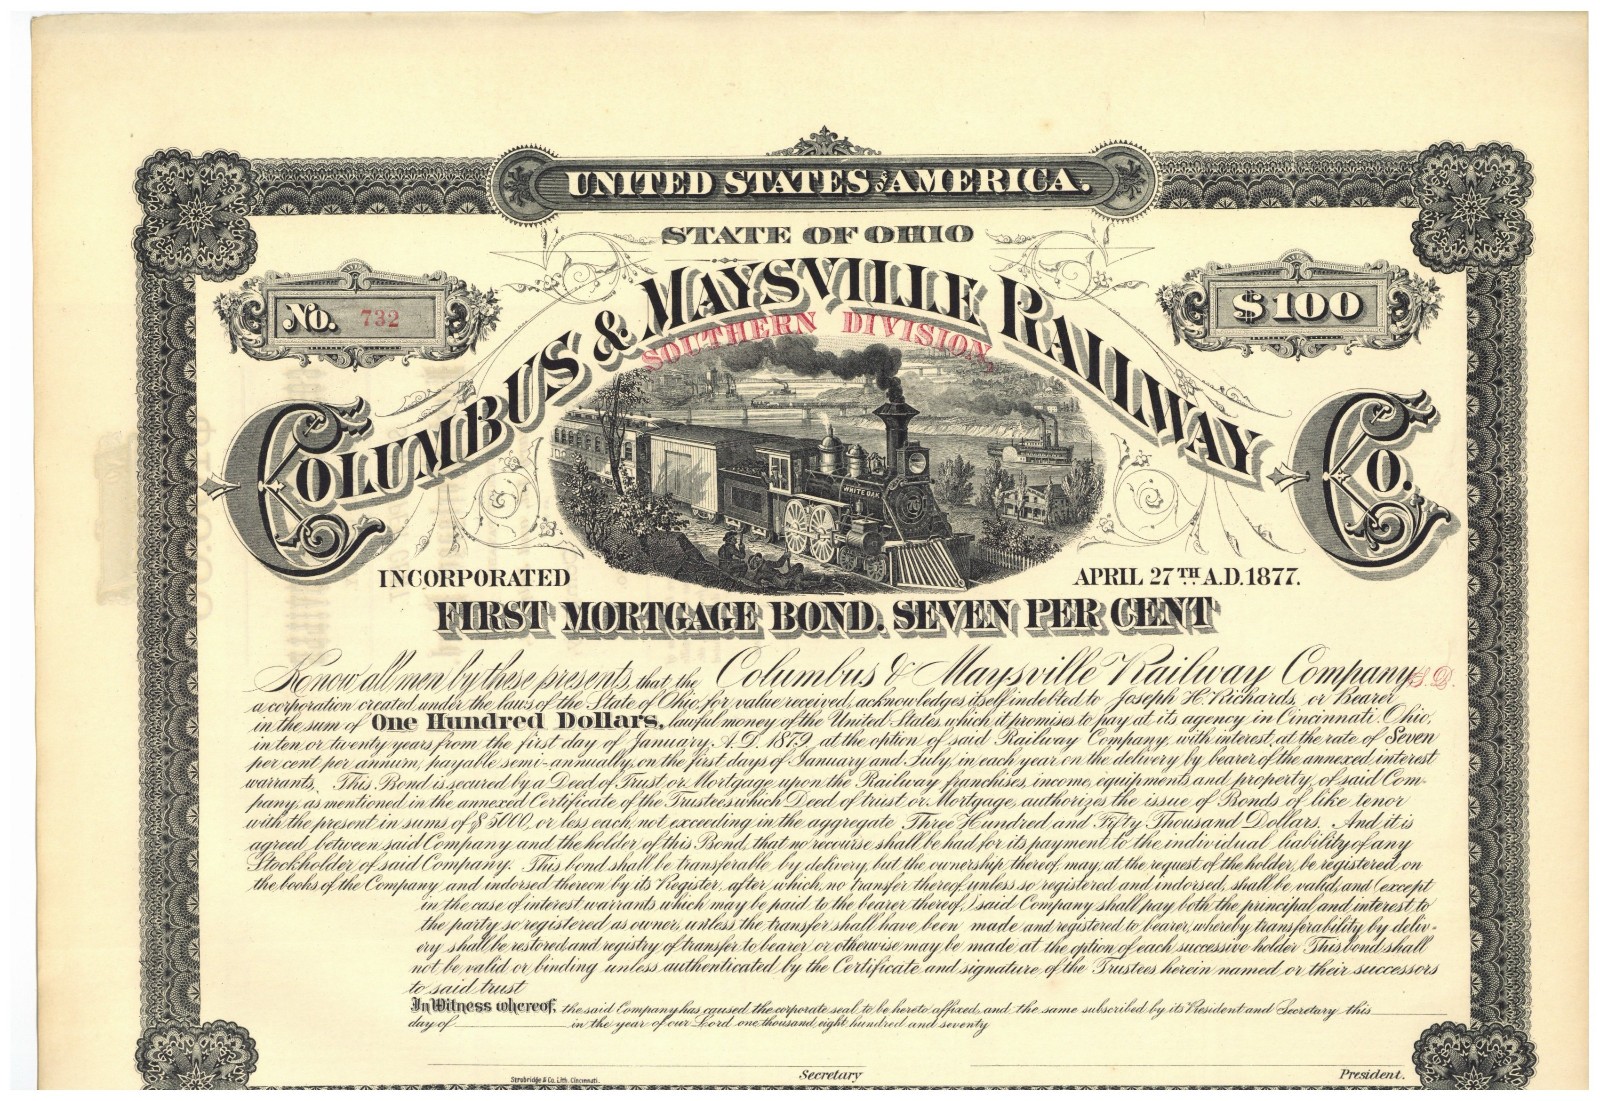 UNITED STATES OF AMERICA.
STATE OF OHIO
No. 732
$100
COLUMBUS & MAYSVILLE RAILWAY CO.
SOUTHERN DIVISION,
WHITE OAK
INCORPORATED
APRIL 27TH A.D. 1877.
FIRST MORTGAGE BOND. SEVEN PER CENT
Know all men by these presents, that the Columbus & Maysville Railway Company, S.D.
a corporation created under the laws of the State of Ohio, for value received, acknowledges itself indebted to Joseph H. Richards, or Bearer
in the sum of One Hundred Dollars, lawful money of the United States, which it promises to pay at its agency in Cincinnati, Ohio,
in ten or twenty years, from the first day of January, A.D. 1879, at the option of said Railway Company, with interest, at the rate of Seven
per cent per annum, payable semi-annually, on the first days of January and July, in each year on the delivery by bearer of the annexed interest
warrants. This Bond is secured by a Deed of Trust or Mortgage upon the Railway franchises, income, equipments and property, of said Com-
pany, as mentioned in the annexed Certificate of the Trustees which Deed of trust or Mortgage, authorizes the issue of Bonds of like tenor
with the present in sums of $5000, or less each, not exceeding in the aggregate, Three Hundred and Fifty Thousand Dollars. And it is
agreed between said Company and the holder of this Bond, that no recourse shall be had for its payment to the individual liability of any
Stockholder of said Company. This bond shall be transferable by delivery, but the ownership thereof, may, at the request of the holder, be registered, on
the books of the Company and indorsed thereon by its Register, after which, no transfer thereof, unless so registered and indorsed, shall be valid, and (except
in the case of interest warrants which may be paid to the bearer thereof,) said Company shall pay both the principal and interest to
the party so registered as owner, unless the transfer shall have been made and registered to bearer, whereby transferability by deliv-
ery shall be restored and registry of transfer to bearer or otherwise may be made at the option of each successive holder This bond shall
not be valid or binding unless authenticated by the Certificate and signature of the Trustees herein named or their successors
to said trust
In Witness whereof, the said Company has caused the corporate seal to be hereto affixed, and the same subscribed by its President and Secretary this
day of in the year of our Lord one thousand eight hundred and seventy
Secretary
President.
Strobridge & Co. Lith. Cincinnati.